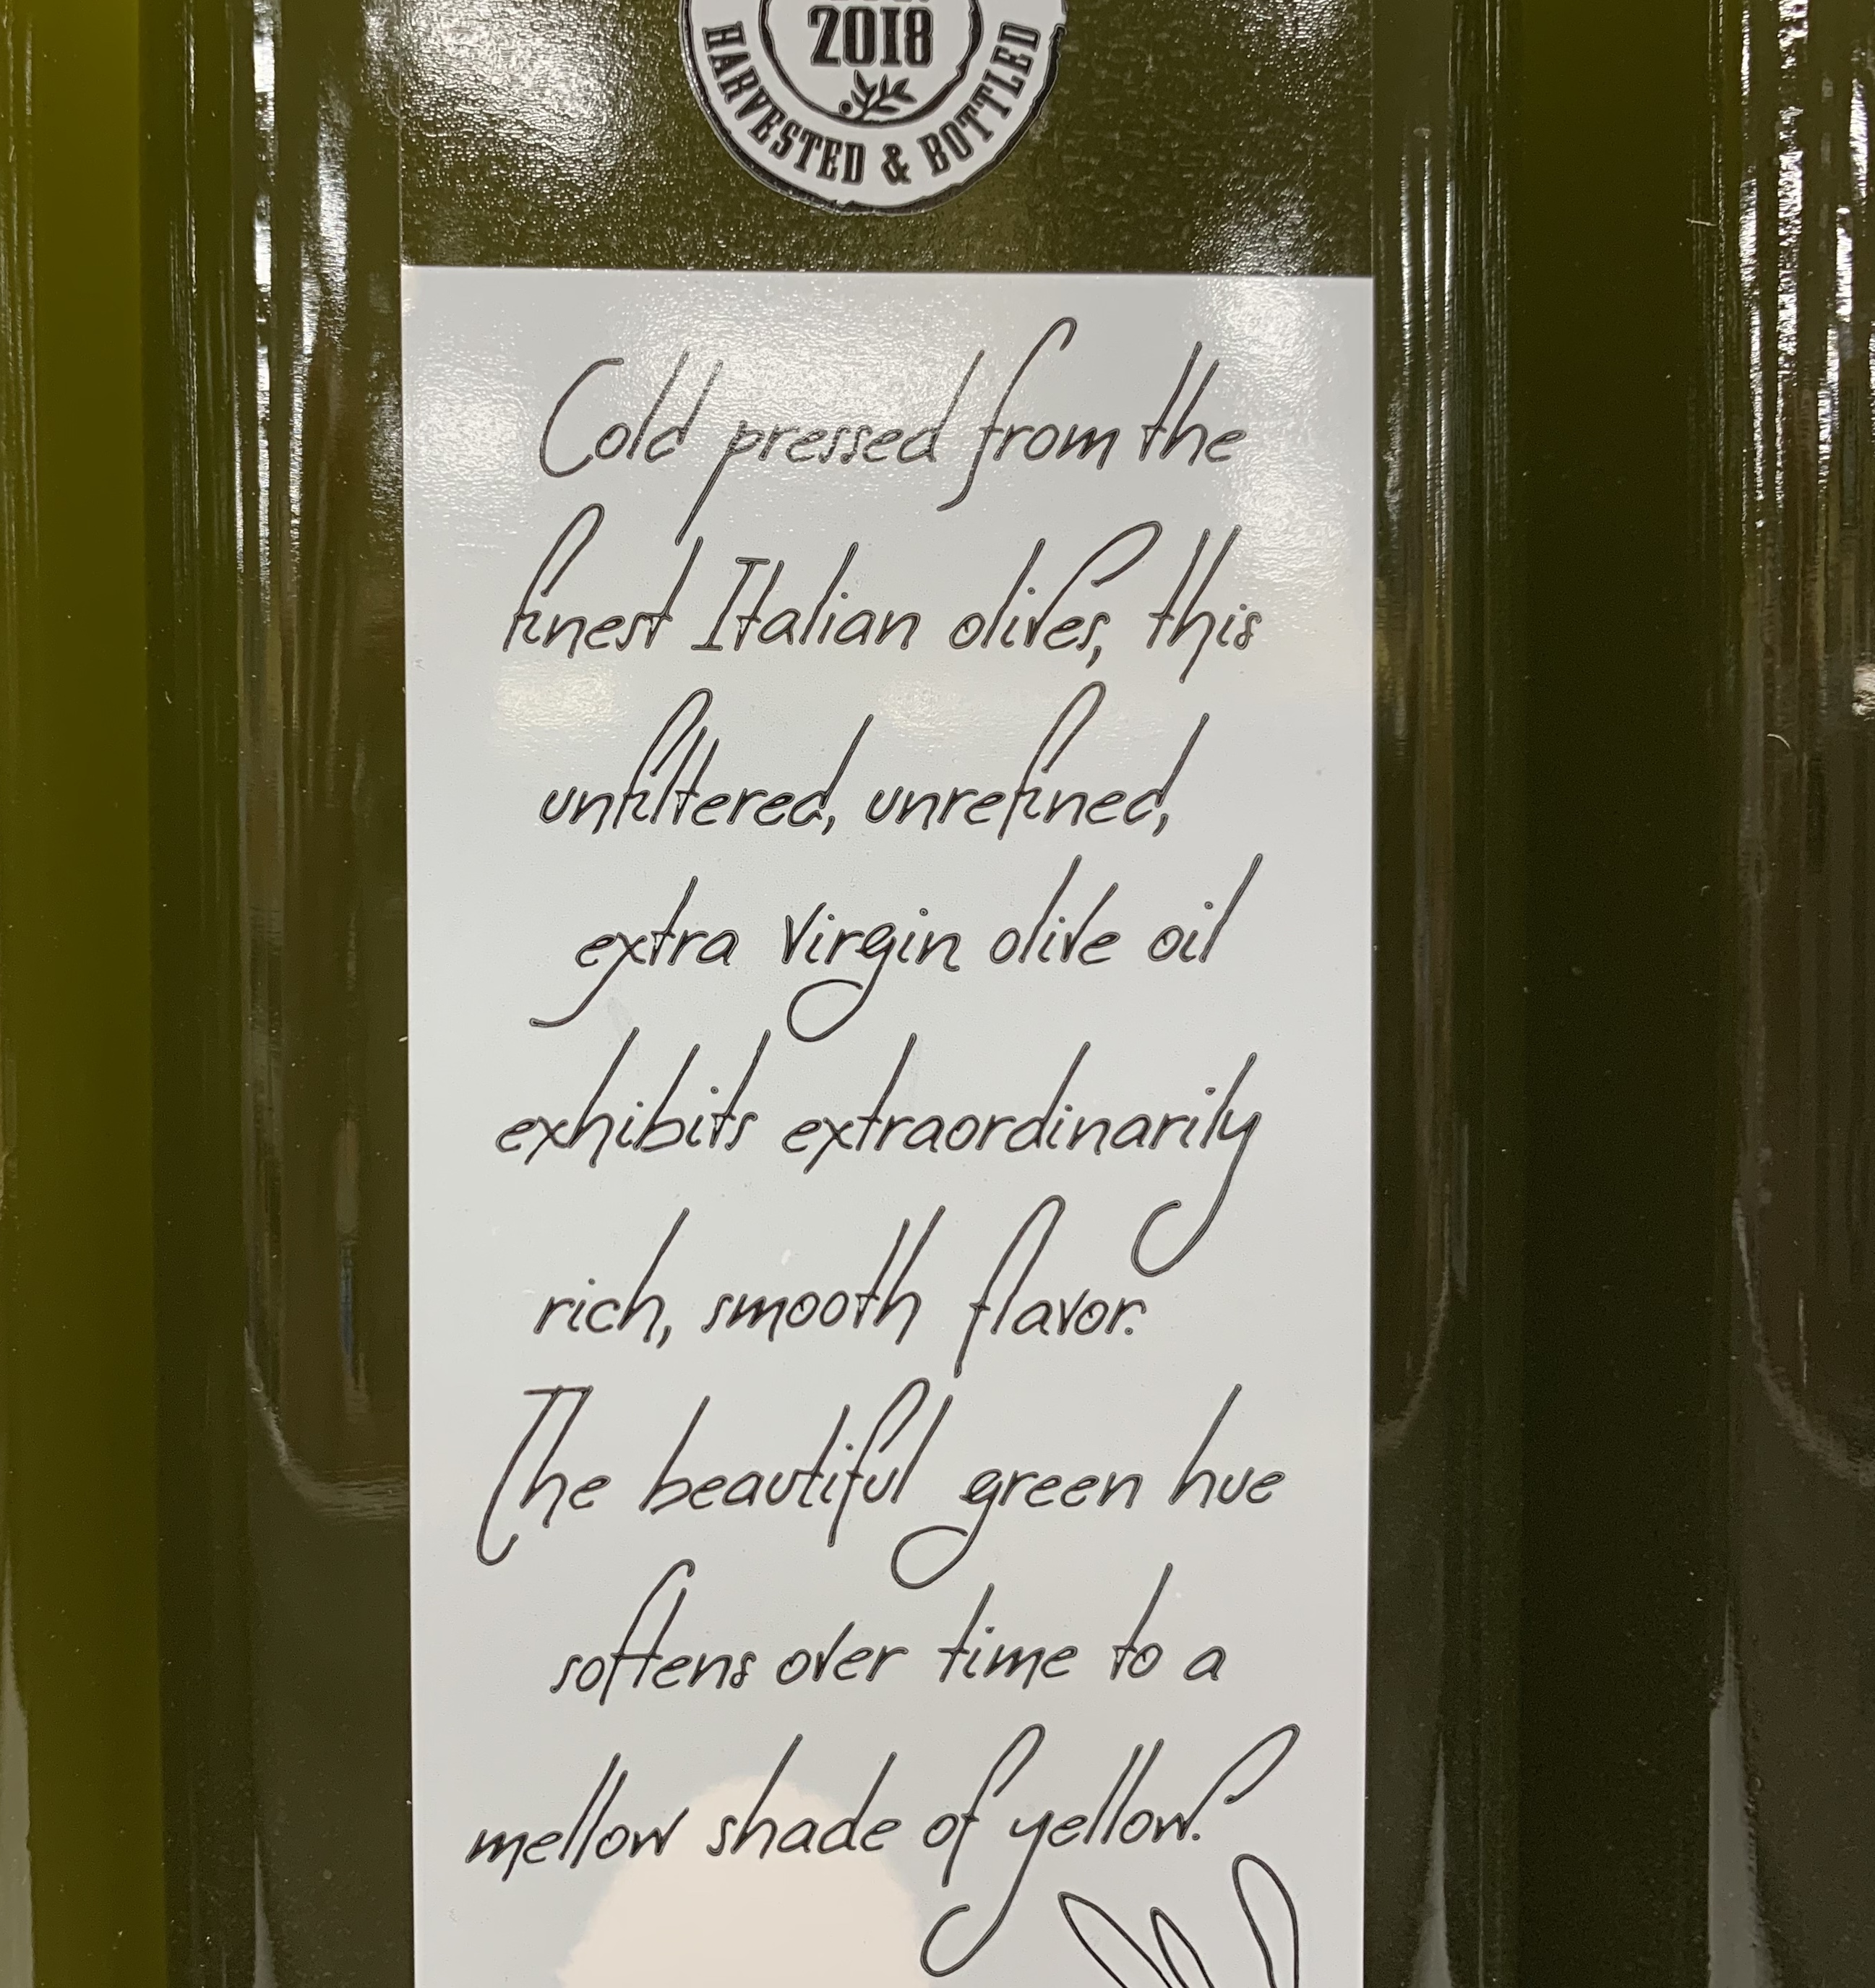 2018
HARVESTED & BOTTLED
Cold pressed from the
finest Italian olives, this
unfiltered, unrefined,
extra virgin olive oil
exhibits extraordinarily
rich, smooth flavor.
The beautiful green hue
softens over time to a
mellow shade of yellow.